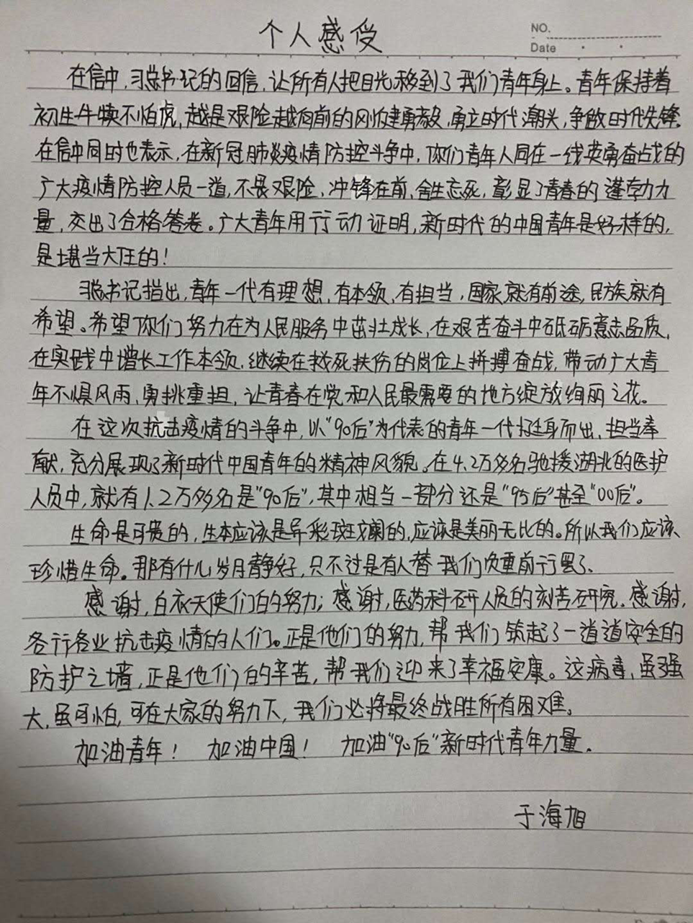 个人感受
NO.
Date
在信中,习总书记的回信,让所有人把目光移到了我们青年身上。青年保持着
初生牛犊不怕虎,越是艰险越向前的刚健勇毅,勇立时代潮头,争做时代先锋。
在信中同时也表示,在新冠肺炎疫情防控斗争中,你们青年人同在一线英勇奋战的
广大疫情防控人员一道,不畏艰险,冲锋在前,舍生忘死,彰显了青春的蓬勃力
量,交出了合格答卷。广大青年用行动证明,新时代的中国青年是好样的,
是堪当大任的!
习总书记指出,青年一代有理想,有本领,有担当,国家就有前途,民族就有
希望。希望你们努力在为人民服务中茁壮成长,在艰苦奋斗中砥砺意志品质,
在实践中增长工作本领,继续在救死扶伤的岗位上拼搏奋战,带动广大青
年不惧风雨,勇挑重担,让青春在党和人民最需要的地方绽放绚丽之花。
在这次抗击疫情的斗争中,以"90后"为代表的青年一代挺身而出,担当奉
献,充分展现了新时代中国青年的精神风貌。在4.2万多名驰援湖北的医护
人员中,就有1.2万多名是"90后",其中相当一部分还是"95后"甚至"00后"。
生命是可贵的,生本应该是异彩斑斓的,应该是美丽无比的。所以我们应该
珍惜生命。那有什么岁月静好,只不过是有人替我们负重前行罢了、
感谢,白衣天使们的努力;感谢,医药科研人员的刻苦研究.感谢,
各行各业抗击疫情的人们。正是他们的努力,帮我们筑起了一道道安全的
防护之墙,正是他们的辛苦,帮我们迎来了幸福安康。这病毒,虽强
大,虽可怕,可在大家的努力下,我们必将最终战胜所有困难。
加油青年! 加油中国! 加油"90后"新时代青年力量.
于海旭